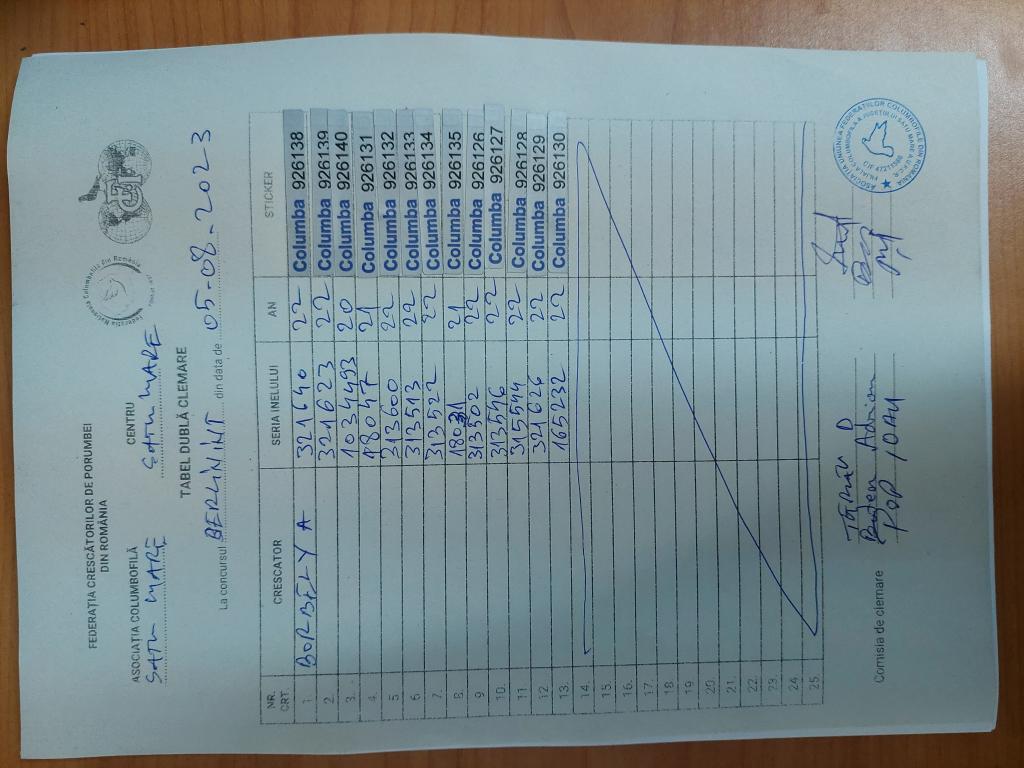 FEDERAȚIA CRESCĂTORILOR DE PORUMBEI
DIN ROMÂNIA
ASOCIAȚIA COLUMBOFILĂ CENTRU
SATU MARE SATU MARE
TABEL DUBLĂ CLEMARE
La concursul BERLIN INT din data de 05-08-2023
NR. CRT. CRESCATOR SERIA INELULUI AN STICKER
1. BORBELY A 321640 22 Columba 926138
2. 321623 22 Columba 926139
3. 1034493 20 Columba 926140
4. 18047 21 Columba 926131
5. 313600 22 Columba 926132
6. 313513 22 Columba 926133
7. 313522 22 Columba 926134
8. 18031 21 Columba 926135
9. 313502 22 Columba 926126
10. 313546 22 Columba 926127
11. 315544 22 Columba 926128
12. 321626 22 Columba 926129
13. 165232 22 Columba 926130
14.
15.
16.
17.
18.
19.
20.
21.
22.
23.
24.
25.
Comisia de clemare
Adrian
POP IOAN